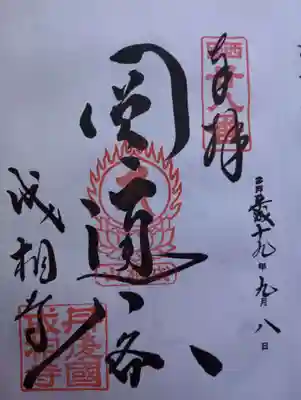 奉拝
西国
廿八番
平成十九年九月八日
圓通閣
成相寺
丹後國
成相寺